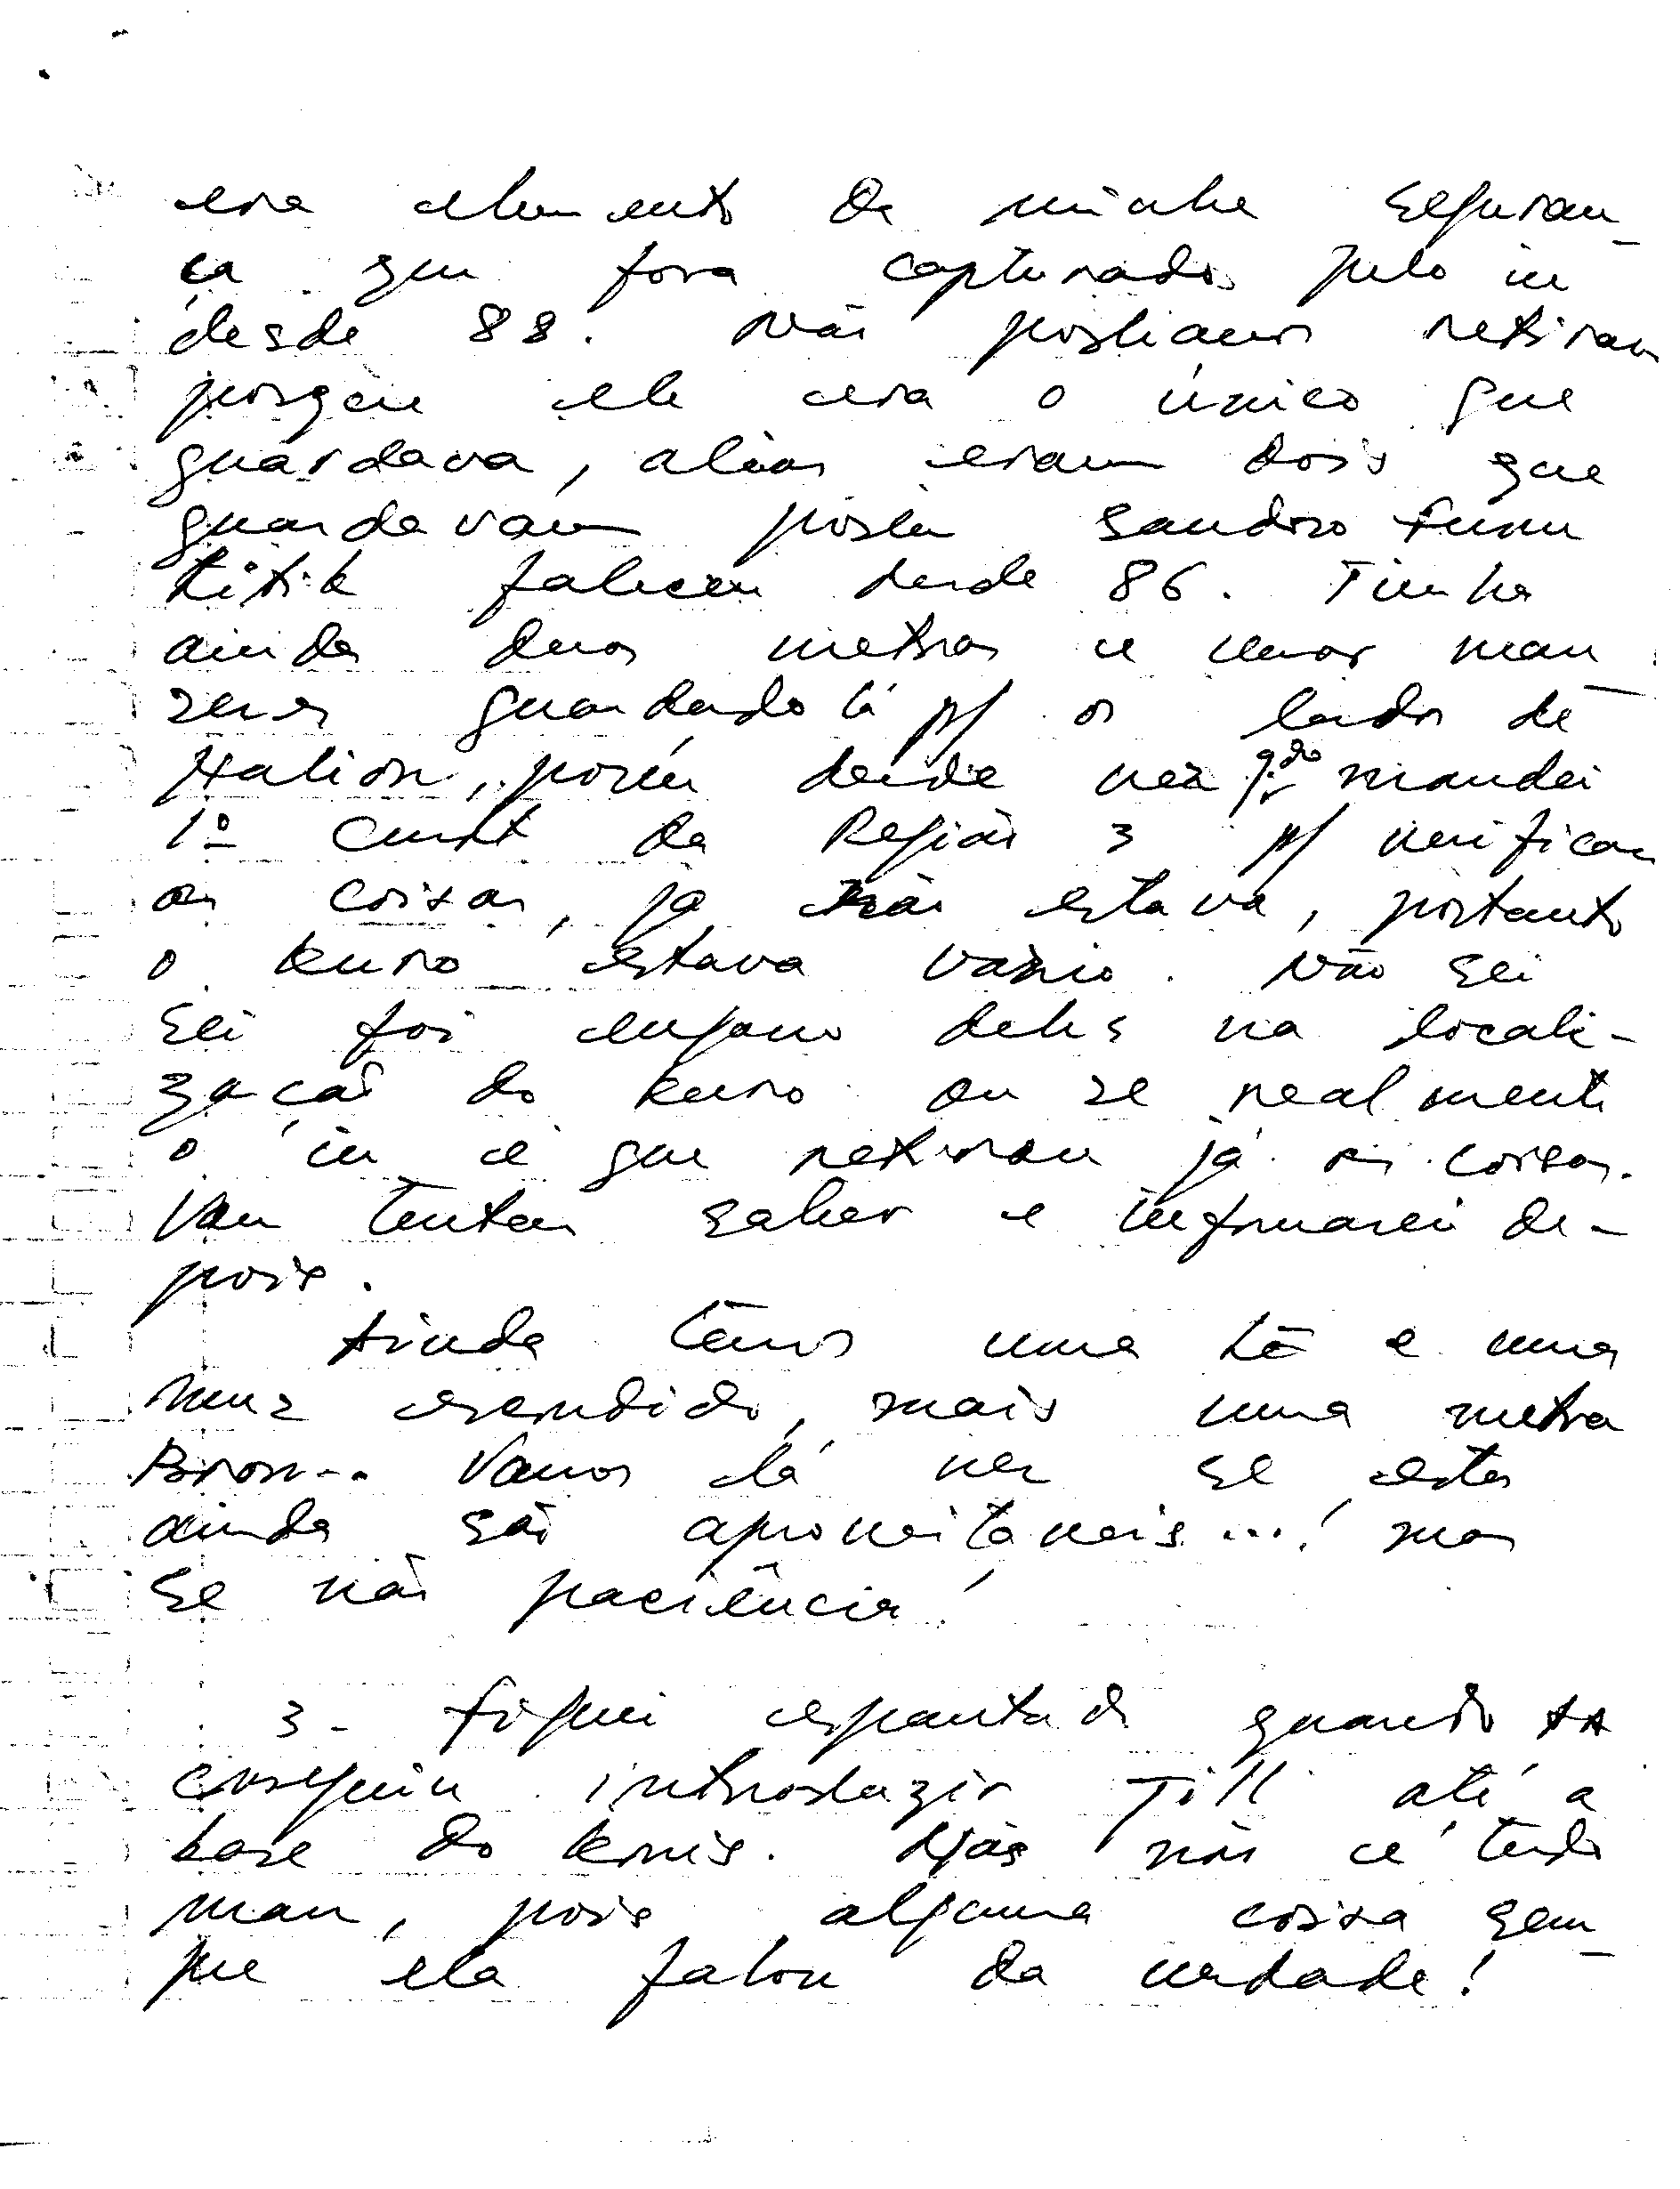 era elemento da minha seguran_
ça que fora capturado pelo in
desde 88. Não podiamos retirar
porque ele era o único que
guardava, alias eram dois que
guardavam porém Sandoro Funu
Kitik faleceu desde 86. Tinha
ainda duas metras e umas man_
zers guardado lá p/ os lados de
Halion, porém desde vez qdo mandei
1º Cmdt da Região 3 p/ verificar
as coisas, ja não estava, portanto
o kuro estava vazio. Não sei
sei foi engano deles na locali-
zação do kuro ou se realmente
o in é que retirou já as coisas.
Vou tentar saber e informarei de-
pois.
Ainda temos uma e uma
escondido, mais uma metra
Vamos lá ver se estes
ainda são aproveitaveis...! mas
se não paciência!
3- fiquei espantado quando AA
conseguiu introduzir Jill até a
base do konis. Mas não é tudo
mau, pois alguma coisa sem_
pre ela falou da verdade!